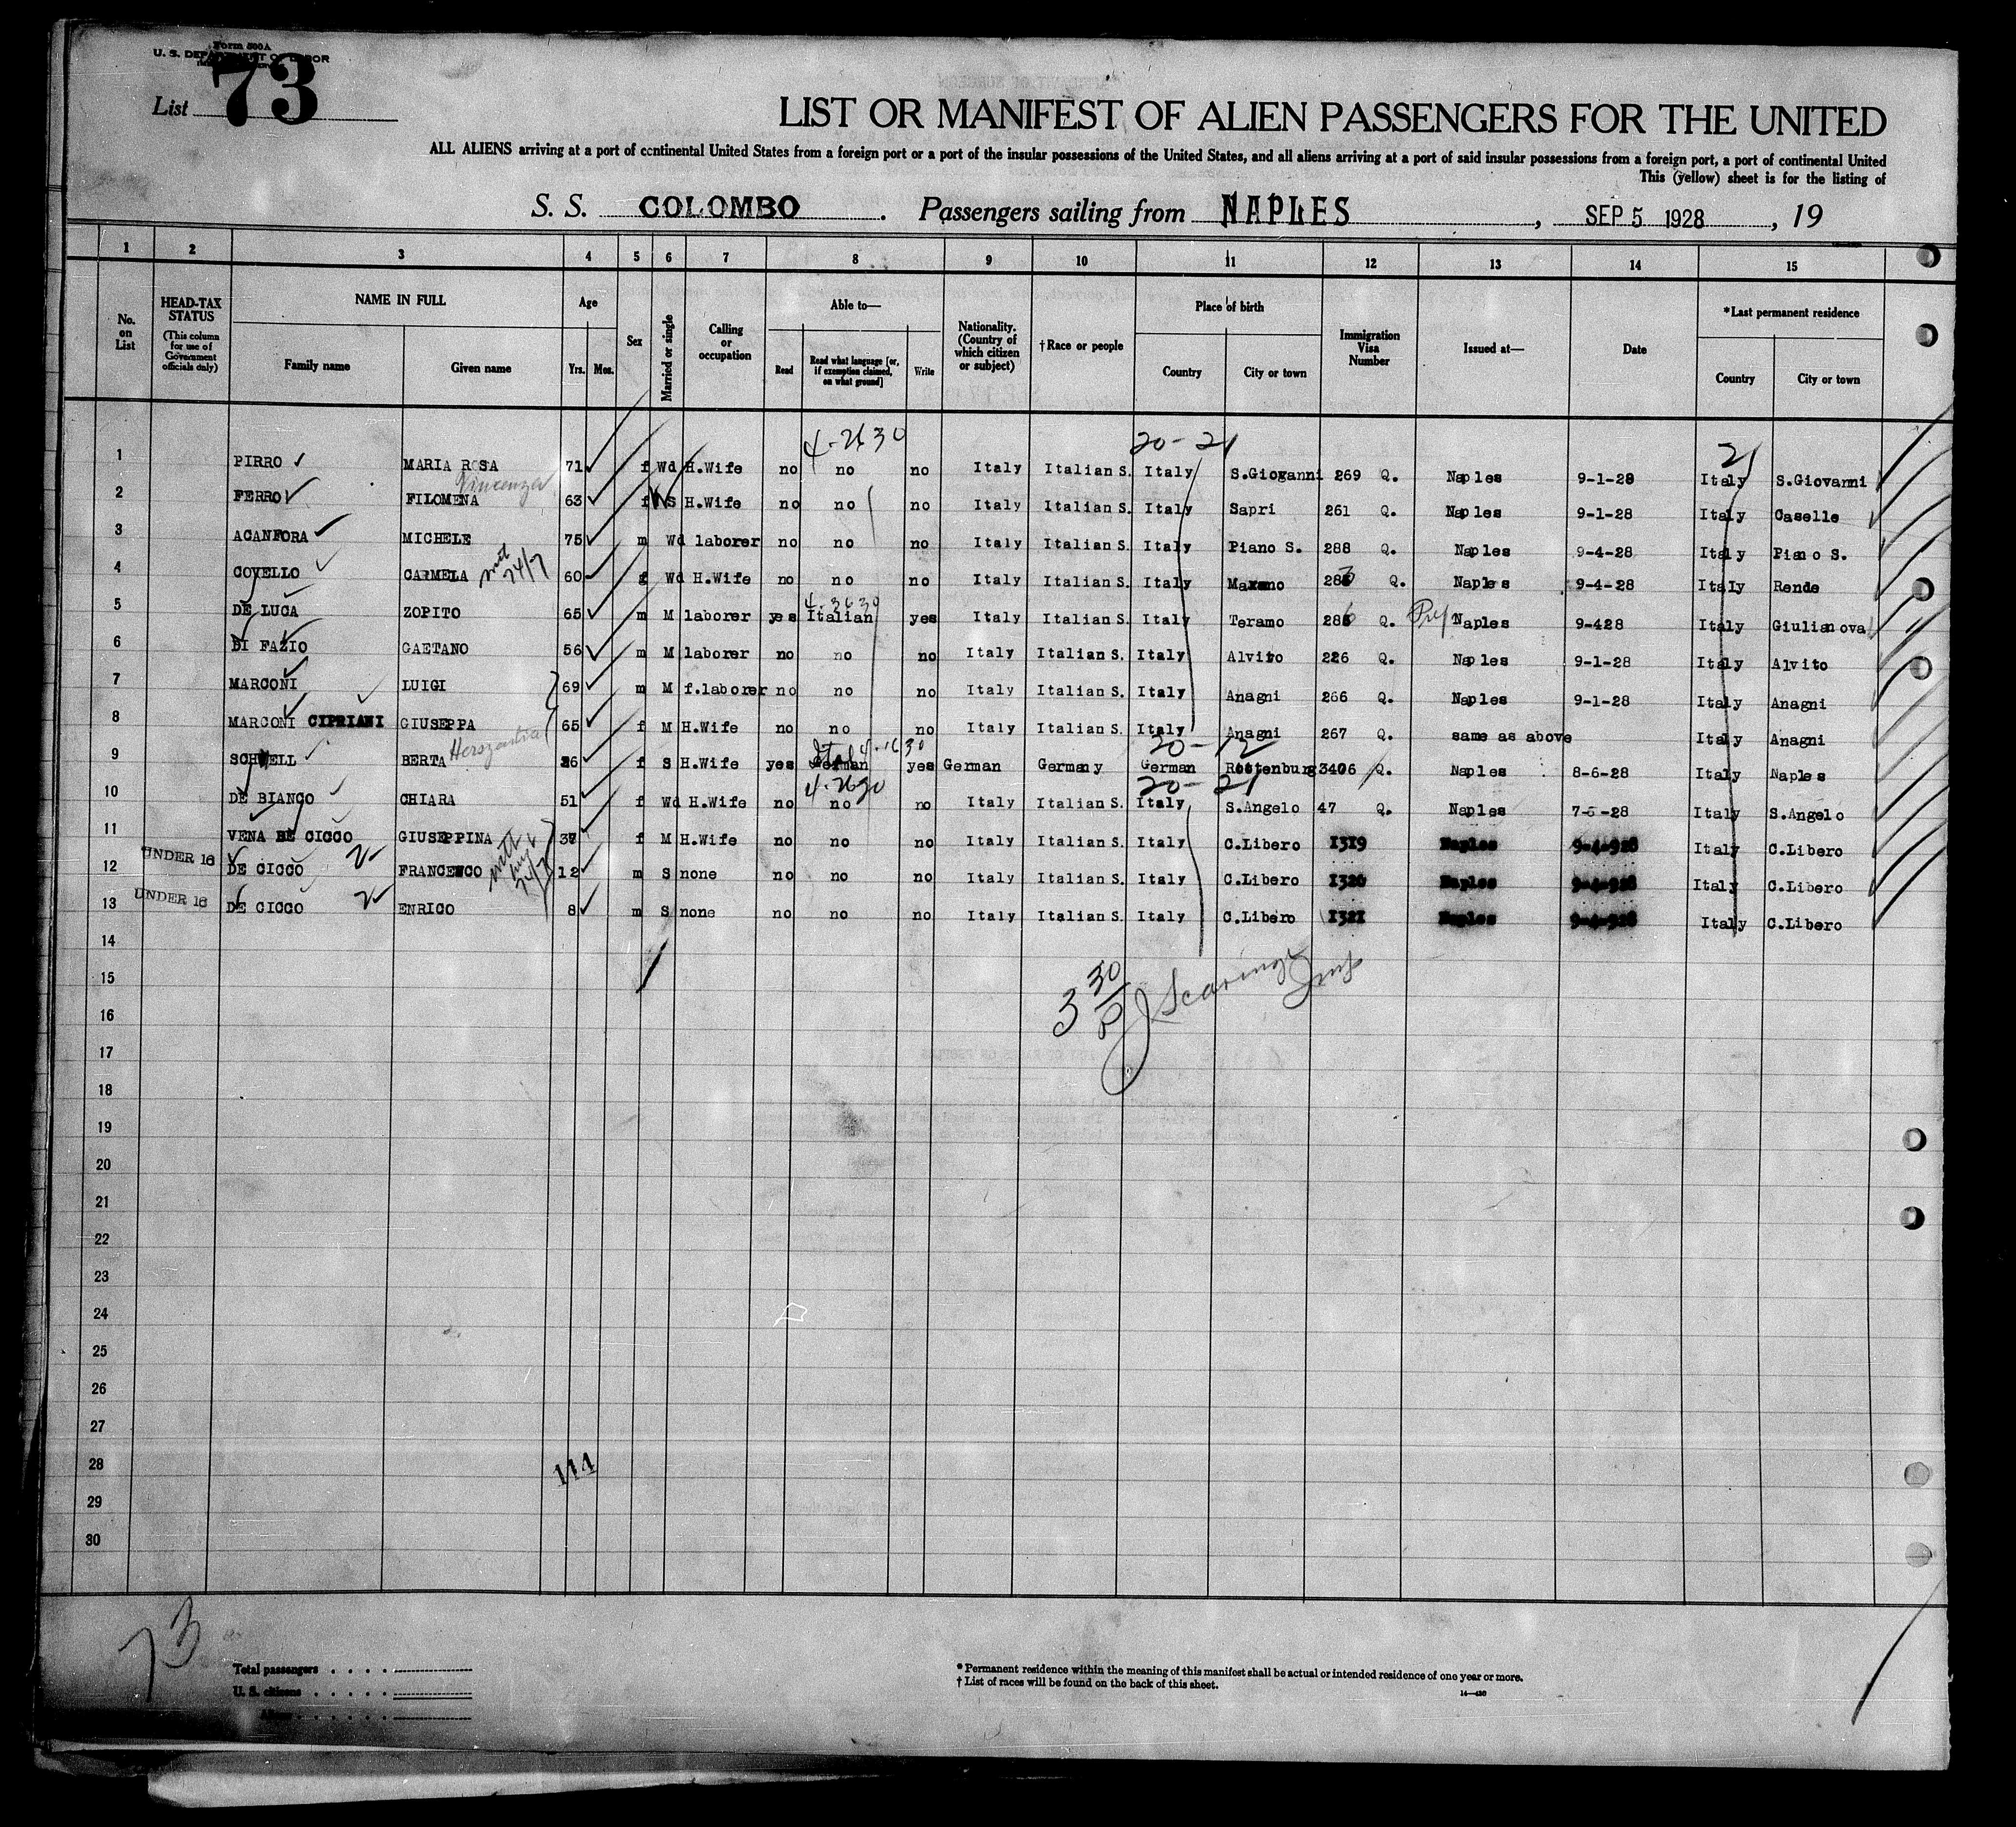 Form 500A
U. S. DEPARTMENT OF LABOR
List 73
LIST OR MANIFEST OF ALIEN PASSENGERS FOR THE UNITED
ALL ALIENS arriving at a port of continental United States from a foreign port or a port of the insular possessions of the United States, and all aliens arriving at a port of said insular possessions from a foreign port, a port of continental United
This (yellow) sheet is for the listing of
S. S. COLOMBO . Passengers sailing from NAPLES , SEP 5 1928 , 19
1 2 3 4 5 6 7 8 9 10 11 12 13 14 15
No. on List
HEAD-TAX STATUS (This column for use of Government officials only)
NAME IN FULL
Family name Given name
Age
Yrs. Mos.
Sex
Married or single
Calling or occupation
Able to—
Read
Read what language [or, if exemption claimed, on what ground]
Write
Nationality. (Country of which citizen or subject)
†Race or people
Place of birth
Country City or town
Immigration Visa Number
Issued at—
Date
*Last permanent residence
Country City or town
4-2630 20-21 21
1 PIRRO MARIA ROSA 71 f Wd H.Wife no no no Italy Italian S. Italy S.Giovanni 269 Q. Naples 9-1-28 Italy S.Giovanni
Vincenza
2 FERRO FILOMENA 63 f S H.Wife no no no Italy Italian S. Italy Sapri 261 Q. Naples 9-1-28 Italy Caselle
3 ACANFORA MICHELE 75 m Wd laborer no no no Italy Italian S. Italy Piano S. 288 Q. Naples 9-4-28 Italy Piano S.
4 COVELLO CARMELA 24/7 60 Wd H.Wife no no no Italy Italian S. Italy 283 Q. Naples 9-4-28 Italy Rende
4-3630
5 DE LUCA ZOPITO 65 m M laborer yes Italian yes Italy Italian S. Italy Teramo 286 Q. Naples 9-428 Italy Giulianova
6 DI FAZIO GAETANO 56 m M laborer no no no Italy Italian S. Italy Alvito 226 Q. Naples 9-1-28 Italy Alvito
7 MARCONI LUIGI 69 m M f.laborer no no no Italy Italian S. Italy Anagni 266 Q. Naples 9-1-28 Italy Anagni
8 MARCONI CIPRIANI GIUSEPPA 65 f M H.Wife no no no Italy Italian S. Italy Anagni 267 Q. same as above Italy Anagni
Ital 4-1630 20-12
9 BERTA 26 f S H.Wife yes German yes German Germany German Rottenburg 3406 Q. Naples 8-6-28 Italy Naples
4-2630 20-21
10 DE BIANCO CHIARA 51 f Wd H.Wife no no no Italy Italian S. Italy S.Angelo 47 Q. Naples 7-5-28 Italy S.Angelo
11 VENA DE CICCO GIUSEPPINA 37 f M H.Wife no no no Italy Italian S. Italy C.Libero 1319 Naples 9-4-928 Italy C.Libero
UNDER 16
12 DE CICCO FRANCESCO 12 m S none no no no Italy Italian S. Italy C.Libero 1320 Naples 9-4-928 Italy C.Libero
UNDER 16
13 DE CICCO ENRICO 8 m S none no no no Italy Italian S. Italy C.Libero 1321 Naples 9-4-928 Italy C.Libero
14
15
16
17
18
19
20
21
22
23
24
25
26
27
28
29
30
114
73
Total passengers
U. S. citizens
Aliens
* Permanent residence within the meaning of this manifest shall be actual or intended residence of one year or more.
† List of races will be found on the back of this sheet.